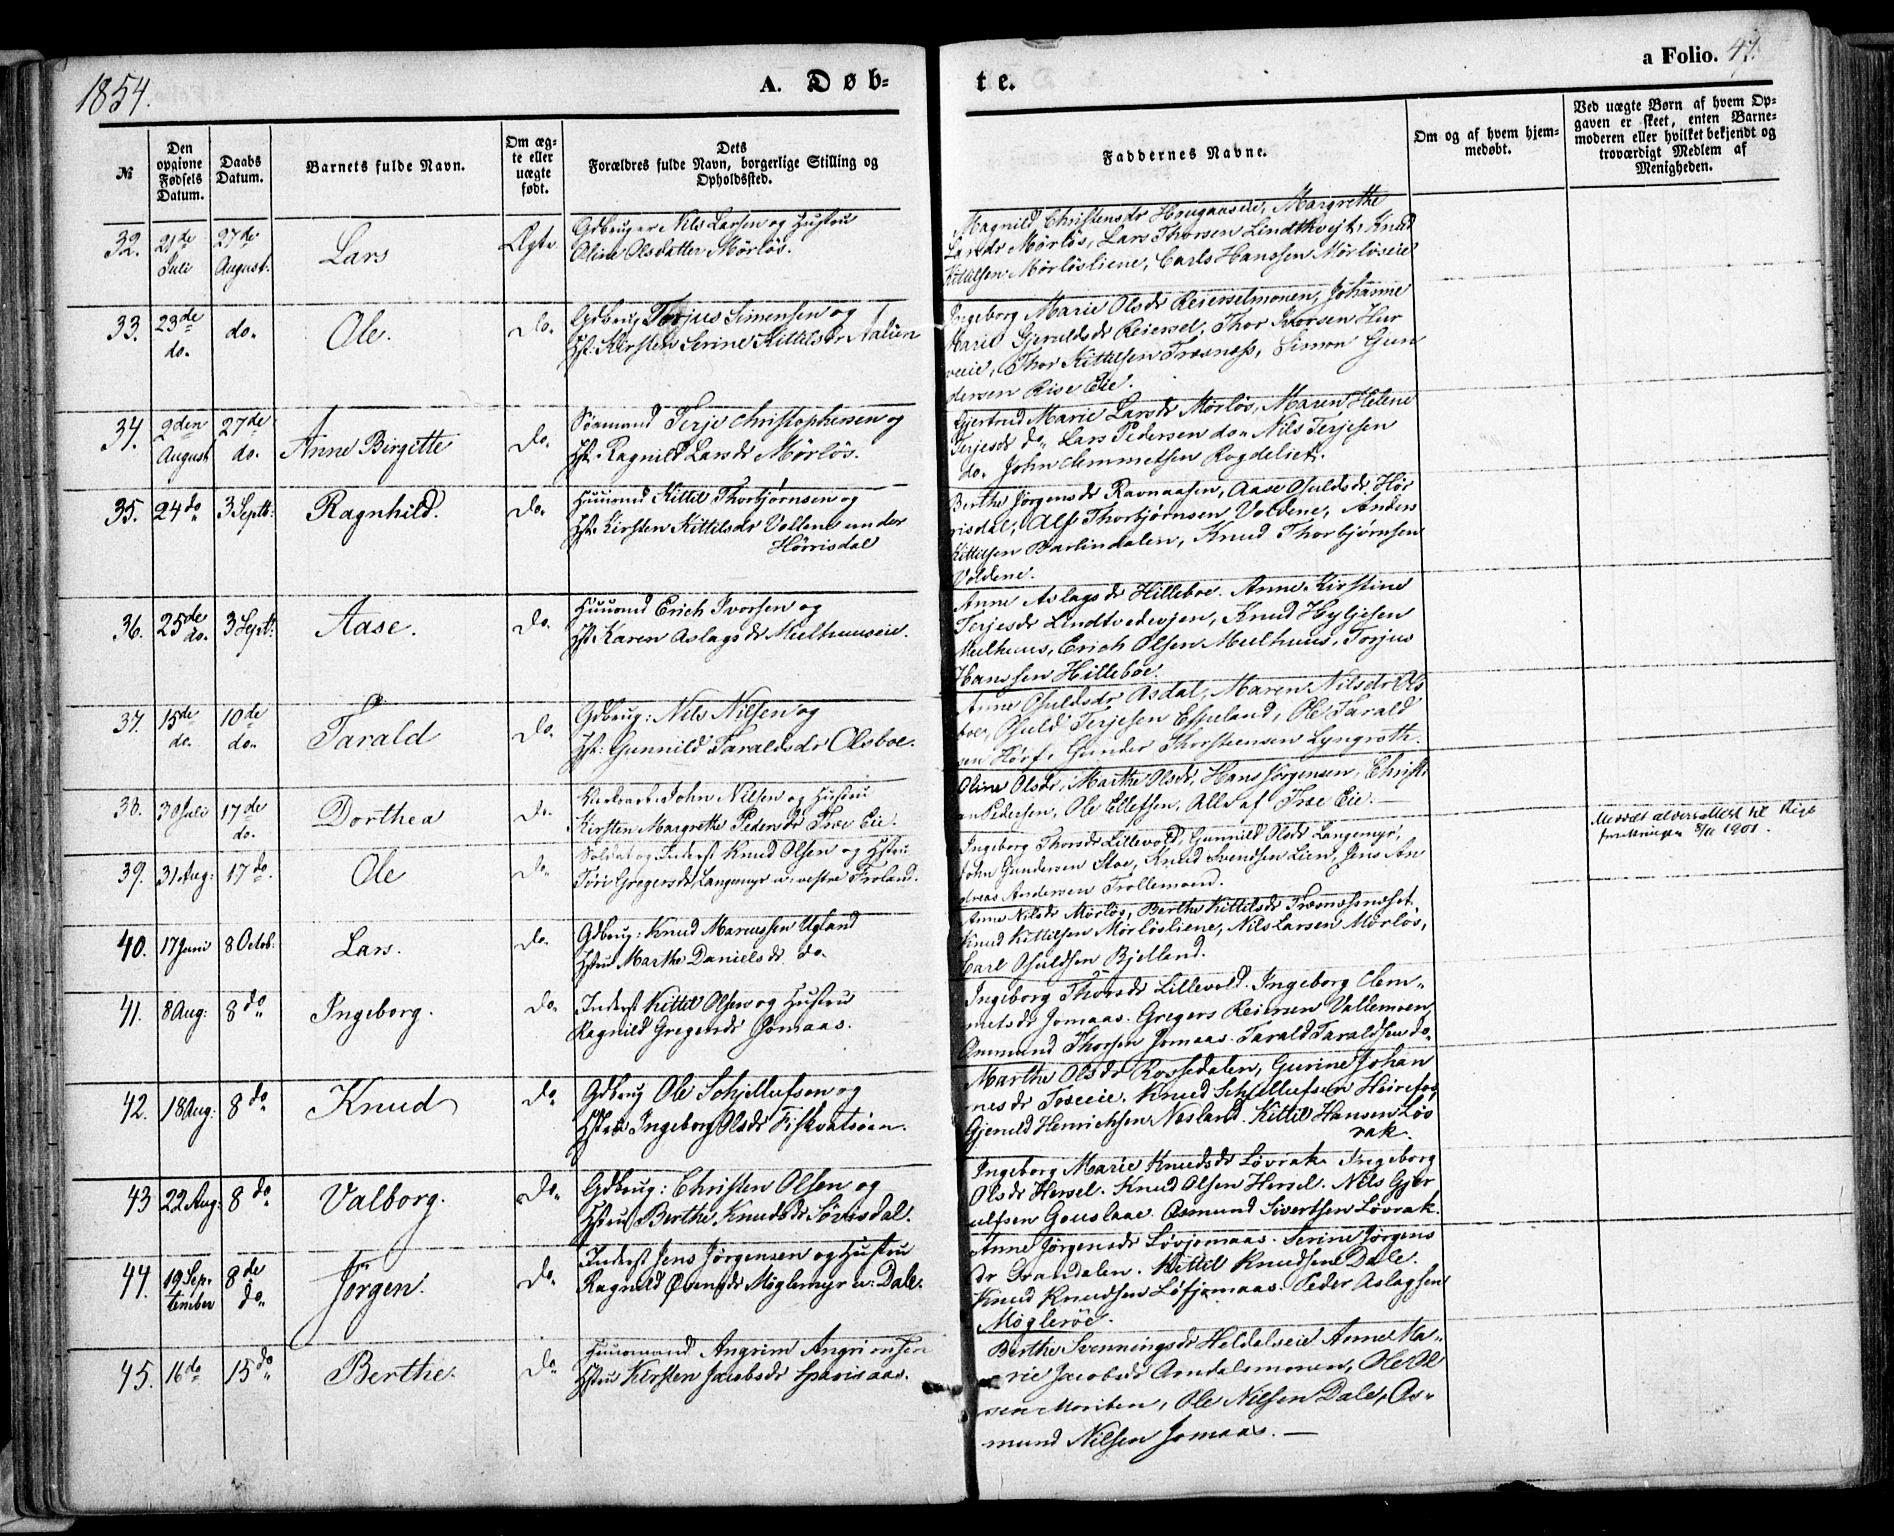 1854.
A. Døb-
te.
a Folio. 47.
№
Den opgivne Fødsels Datum.
Daabs Datum.
Barnets fulde Navn.
Om ægte eller uægte født.
Dets
Forældres fulde Navn, borgerlige Stilling og
Opholdssted.
Faddernes Navne.
Om og af hvem hjem-
medøbt.
Ved uægte Børn af hvem Op-
gaven er skeet, enten Barne-
moderen eller hvilket bekjendt og
troværdigt Medlem af
Menigheden.
32. 21de Juli 27de August. Lars Ægte
Gdbruger Nils Larsen og Hustru
Oline Olsdatter Mörlös.
Magnild Christensdr Haugaaseie, Margrethe
Larsdr Mörlös, Lars Thorsen Lindtkvejt, Knud
Kittilsen Mörlösliene, Carls Hanssen Mörlöseie
33. 23de do. do. Ole. do.
Gdbrug Torjus Simensen og
Hst. Kirsten Serine Kittilsdr Aalien
Ingeborg Marie Olsdr Reierselmonen, Johanne
Marie Gjeruldsdr Reiersel, Thor Iversen Hur
veie, Thor Kittilsen Træsnæss, Simon Gun
dersen Rise Eie.
34. 9den August 27de do. Anne Birgitte do.
Sömand Terje Christophersen og
Hst. Ragnild Larsdr Mörlös.
Gjertrud Marie Larsdr Mörlös, Maren Helene
Terjesdr do. Lars Pedersen do. Nils Terjesen
do. John Clemmetsen Rogdeliet.
35. 24do 3 Septb: Ragnhild. do.
Huusmd Kittil Thorbjørnsen og
Hst. Kirsten Kittilsdr Voltene under
Hörrisdal
Berthe Jörgensdr Ravnaasen, Aase Osuldsdr Hör
risdal, Alf Thorbjørnsen Voldene, Anders
Kittilsen Barlindalen, Knud Thorbjørnsen
Voldene.
36. 25de do. 3 Septb: Aase. do.
Huusmd Erich Ivorsen og
Hst. Karen Aslagsdr Meelhuuseie.
Anne Aslagsdr Hilleboe. Anne Kirstine
Terjesdr Lindtvedvejen, Knud Hyljesen
Meelhuus, Erich Olsen Meelhuus, Torjus
Hanssen Hilleboe.
37. 15de do. 10de do. Tarald do.
Gdbrug: Nils Nilsen og
Hst. Gunnild Taraldsdr Olsboe.
Anne Osuldsdr Osdal, Maren Nilsdr Ols
boe, Osuld Terjesen Espeland, Ole Tarald
sen Hörf, Gunder Thorsteensen Lyngroth.
38. 30 Juli 17de do. Dorthea do.
John Nilsen og Hustru
Kirsten Margrethe Pedersdr Træ Eie.
Oline Olsdr, Marthe Olsdr, Hans Jörgensen, Christi
an Pedersen, Ole Ellefsen, Alle af Træ Eie. —
Meddelt aldersattest til Rigs
forsikringen 8/11 1901.
39. 31 Aug: 17do. Ole do.
Soldat og Inderst Knud Olsen og Hstru
Töri Gregersdr Langemyr u: vestre Froland.
Ingeborg Thorsdr Lillevold, Gunnild Olsdr Langemyr,
John Gundersen Stoe, Knud Svendsen Lien, Jens An
dreas Andersen Trollemoend.
40. 17 Juni 8 Octob: Lars. do.
Gdbrug: Knud Marcussen Ugland
Hstru Marthe Danielsdr do.
Anne Nilsdr Mörlös, Berthe Kittilsdr Træsnæssnæset,
Knud Kittilsen Mörlösliene, Nils Larsen Mörlös,
Carl Osuldsen Bjelland.
41. 8 Aug: 8do Ingeborg. do.
Inderst Kittil Olsen og Hustru
Ragnild Gregersdr Jomaas.
Ingeborg Thorsdr Lillevold. Ingeborg Clem-
metsdr Jomaas. Gregers Reiersen Vallemoen,
Ommund Thorsen Jomaas. Tarald Taraldsen do.
42. 18 Aug: 8do Knud do.
Gdbrug Ole Schjellufsen og
Hstru Ingeborg Olsdr Fiskvatsöen.
Marthe Olsdr Rossedalen, Gurine Johan
nesdr Toseeie. Knud Schjellufsen Heirefos,
Gjeruld Henrichsen Næsland. Kittil Hansen Löv
rak.
43 22 Aug: 8do Valborg. do.
Gdbrug: Christen Olsen og
Hstru Berthe Knudsdr Sövisdal.
Ingeborg Marie Knudsdr Lövrak. Ingeborg
Olsdr Hersel. Knud Olsen Hersel. Nils Gjer
ulfsen Gauslaae. Osmund Sivertsen Lövrak.
44. 19 Sep- tember 8de do. Jörgen. do.
Inderst Jens Jörgensen og Hustru
Ragnild Evensdr Möglemyr u: Dale.
Anne Jörgensdr Lövjomaas. Serine Jörgens
dr Grandalen. Kittil Knudsen Dale.
Knud Knudsen Löfjomaas. Peder Aslagsen
Mögleröe.
45. 16do 15do Berthe. do.
Huusmand Angrim Angrimsen
Hstru Kirsten Jacobsdr Sparisaas.
Berthe Svenningsdr Heldalseie Anne Ma-
rie Jacobsd Arndalsmonen, Ole Ol
sen Moriben, Ole Nilsen Dale, Os-
mund Nilsen Jomaas. —